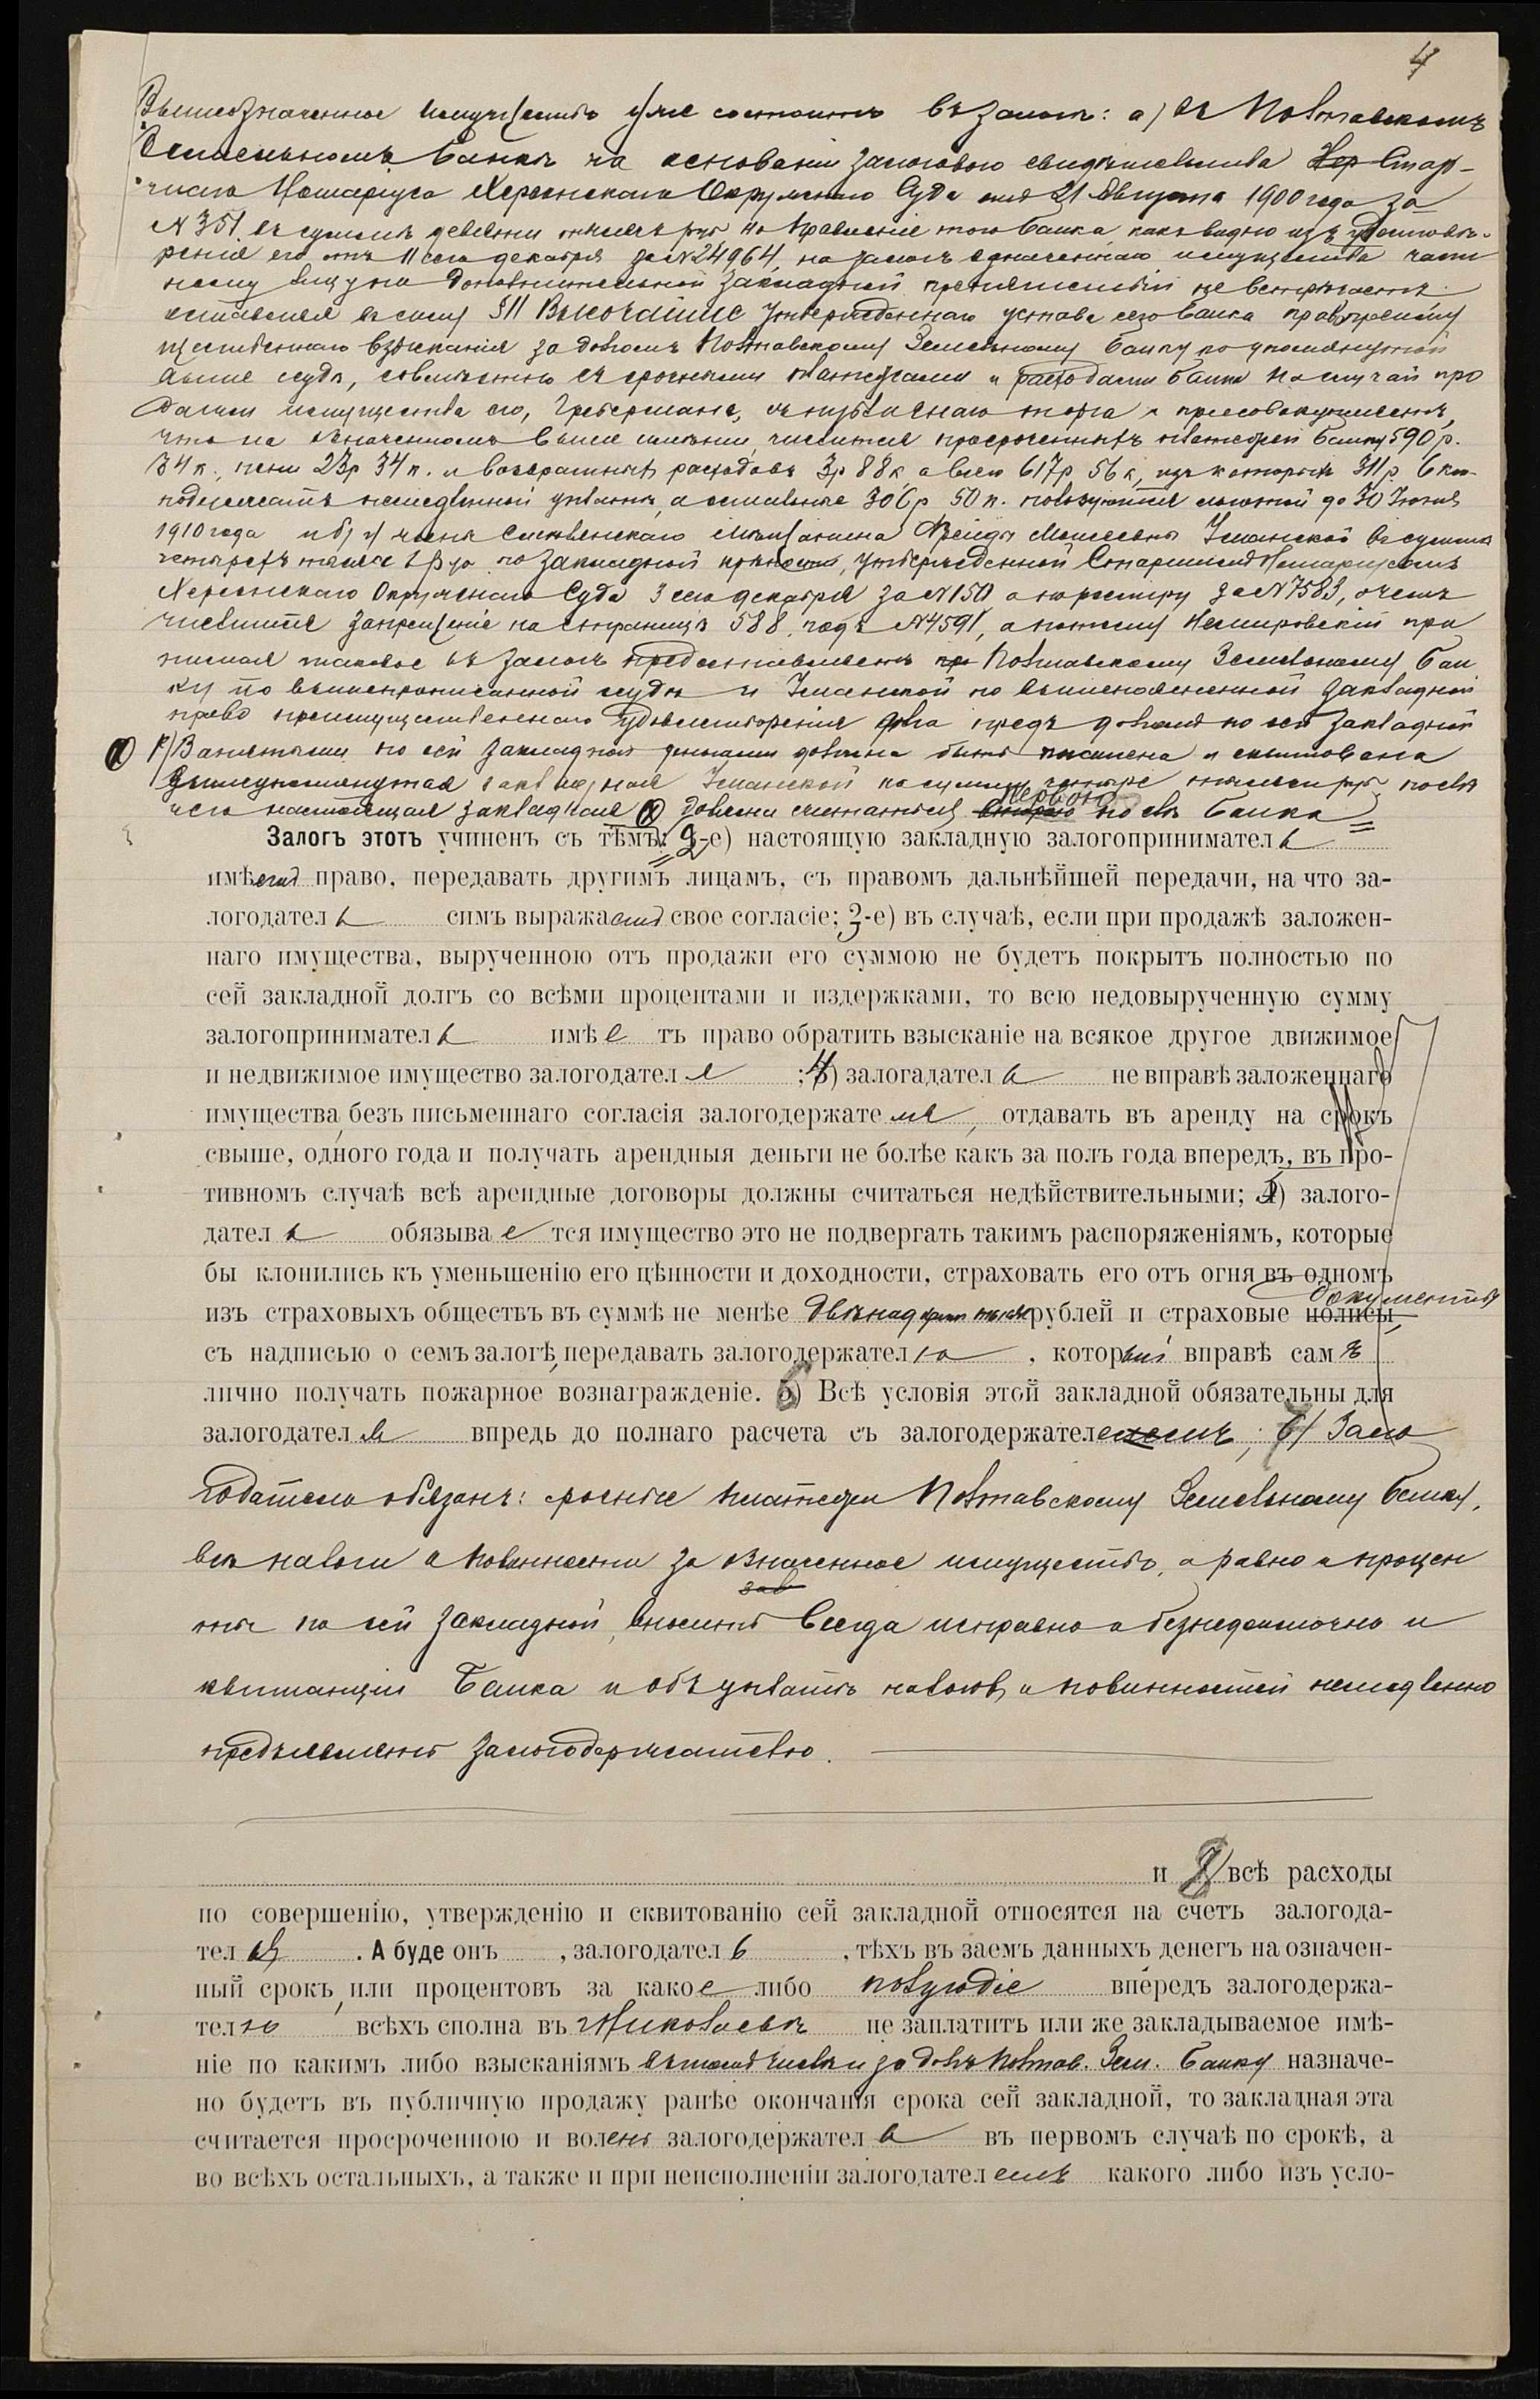 4
Вышеозначенное имущество уже состоитъ въ залогѣ: а) въ Полтавскомъ
Земельномъ банкѣ на основаніи залогового свидѣтельства Хер Стар-
шаго Нотаріуса Херсонскаго Окружнаго Суда отъ 21 Августа 1900 года за
№ 351 въ суммѣ девяти тысячъ руб но Правленіе того банка, какъ видно изъ удостовѣ-
ренія его отъ 11 сего декабря за № 24964, на залогъ означеннаго имущества част
ному лицу по дополнительной закладной препятствій не встрѣчаетъ
оставляя въ силу § 11 Высочайше утвержденнаго устава сего банка право преиму
щественнаго взысканія за долгомъ Полтавскому Земельному банку по упомянутой
выше ссудѣ, совмѣстно съ срочными платежами и расходами банка на случай про
дажи имущества его, съ публичнаго торга и присовокупляетъ,
что на означенномъ выше имѣніи числится просроченныхъ платежей банку 590 р.
34 к., пени 23 р 34 к. и возвратныхъ расходовъ 3 р 88 к, а всего 617 р 56 к, изъ которыхъ 311 р. 6 коп
подлежатъ немедленной уплатѣ, а остальные 306 р 50 к. пользуются льготой до 30 Іюня
1910 года и б) у Моисеевны Уманской въ суммѣ
четырехъ тысячъ руб по закладной крѣпости, утвержденной Старшимъ Нотаріусомъ
Херсонскаго Окружнаго Суда 3 сего декабря за № 150 а по реестру за № 7583, о чемъ
числится запрещеніе на страницѣ 588, подъ № 4591, а потому Немировскій при
нимая таковое въ залогъ предоставляетъ пр Полтавскому Земельному бан
ку по вышепрописанной ссудѣ и Уманской по вышепоясненной закладной
право преимущественнаго удовлетворенія долга предъ долгомъ по сей закладной
1) Взятыми по сей закладной деньгами должна быть погашена и сквитована
вышеупомянутая закладная Уманской на сумму четыре тысячи руб послѣ
чего настоящая закладная должна считаться второю первою послѣ банка
Залогъ этотъ учиненъ съ тѣмъ: 2-е) настоящую закладную залогопринимател ь
имѣетъ право, передавать другимъ лицамъ, съ правомъ дальнѣйшей передачи, на что за-
логодател ь симъ выражаетъ свое согласіе; 3-е) въ случаѣ, если при продажѣ заложен-
наго имущества, вырученною отъ продажи его суммою не будетъ покрытъ полностью по
сей закладной долгъ со всѣми процентами и издержками, то всю недовырученную сумму
залогопринимател ь имѣ е тъ право обратить взысканіе на всякое другое движимое
и недвижимое имущество залогодател я ; 4) залогадател ь не вправѣ заложеннаго
имущества безъ письменнаго согласія залогодержате ля , отдавать въ аренду на срокъ
свыше, одного года и получать арендныя деньги не болѣе какъ за полъ года впередъ, въ про-
тивномъ случаѣ всѣ арендные договоры должны считаться недѣйствительными; ) залого-
дател ь обязыва е тся имущество это не подвергать такимъ распоряженіямъ, которые
бы клонились къ уменьшенію его цѣнности и доходности, страховать его отъ огня въ одномъ
изъ страховыхъ обществъ въ суммѣ не менѣе двѣнадцати тысячъ рублей и страховые полисы документы
съ надписью о семъ залогѣ, передавать залогодержател ю , который вправѣ сам ъ
лично получать пожарное вознагражденіе. 6) Всѣ условія этой закладной обязательны для
залогодател я впредь до полнаго расчета съ залогодержателемъ ; 7) Зало
годатель обязанъ: срочные платежи Полтавскому Земельному банку,
всѣ налоги и повинности за означенное имущество, а равно и процен
ты по сей закладной, вносить всегда исправно и безнедоимочно и
квитанціи Банка и объ уплатѣ налоговъ и повинностей немедленно
предъявлять залогодержателю.
и 8) всѣ расходы
по совершенію, утвержденію и сквитованію сей закладной относятся на счетъ залогода-
тел я . А буде онъ , залогодател ь , тѣхъ въ заемъ данныхъ денегъ на означен-
ный срокъ, или процентовъ за какое либо полугодіе впередъ залогодержа-
телю всѣхъ сполна въ г Николаевѣ не заплатитъ или же закладываемое имѣ-
ніе по какимъ либо взысканіямъ въ томъ числѣ и за долгъ Полтав. Зем. банку назначе-
но будетъ въ публичную продажу ранѣе окончанія срока сей закладной, то закладная эта
считается просроченною и воленъ залогодержател ь въ первомъ случаѣ по срокѣ, а
во всѣхъ остальныхъ, а также и при неисполненіи залогодател емъ какого либо изъ усло-